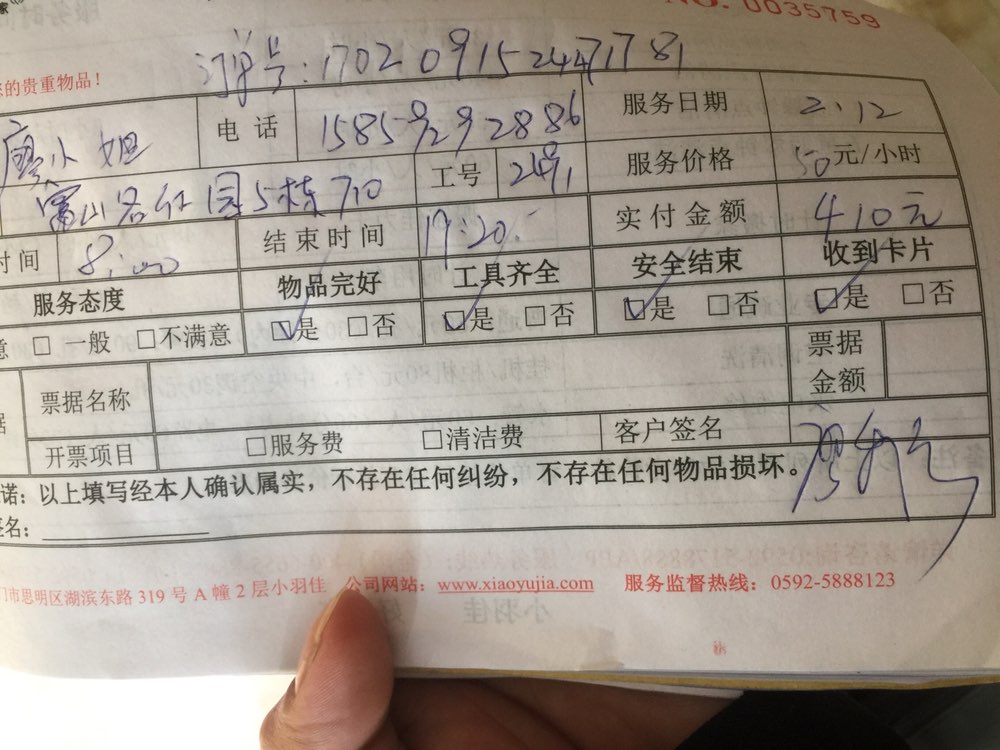 NO. 0035759
订单号：1702091524471781
您的贵重物品！
廖小姐 电话 15859292886 服务日期 2.12
富山名仕园5栋710 工号 2491 服务价格 50元/小时
时间 8:00 结束时间 17:20. 实付金额 410元
服务态度 物品完好 工具齐全 安全结束 收到卡片
意 □ 一般 □不满意 ☑是 □否 ☑是 □否 ☑是 □否 ☑是 □否
据 票据名称 票据金额
开票项目 □服务费 □清洁费 客户签名
诺：以上填写经本人确认属实，不存在任何纠纷，不存在任何物品损坏。
签名：
门市思明区湖滨东路 319 号 A 幢 2 层小羽佳 公司网站：www.xiaoyujia.com 服务监督热线：0592-5888123